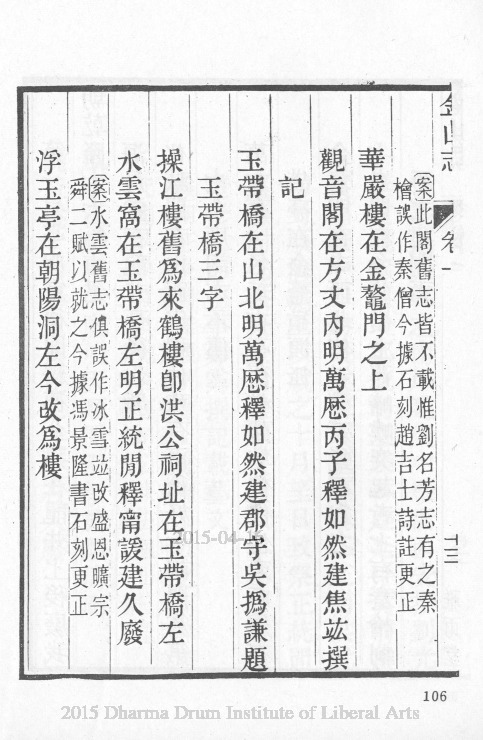 金山志 卷一 十三
案此閣舊志皆不載惟劉名芳志有之秦
檜誤作秦僧今據石刻趙吉士詩註更正
華嚴樓在金鼇門之上
觀音閣在方丈內明萬厯丙子釋如然建焦竑撰
記
玉帶橋在山北明萬厯釋如然建郡守吳撝謙題
玉帶橋三字
操江樓舊爲來鶴樓卽洪公祠址在玉帶橋左
水雲窩在玉帶橋左明正統閒釋甯諼建久廢
案水雲舊志俱誤作冰雪竝改盛恩曠宗
舜二賦以就之今據馮景隆書石刻更正
浮玉亭在朝陽洞左今改爲樓
2015-04-
106
2015 Dharma Drum Institute of Liberal Arts